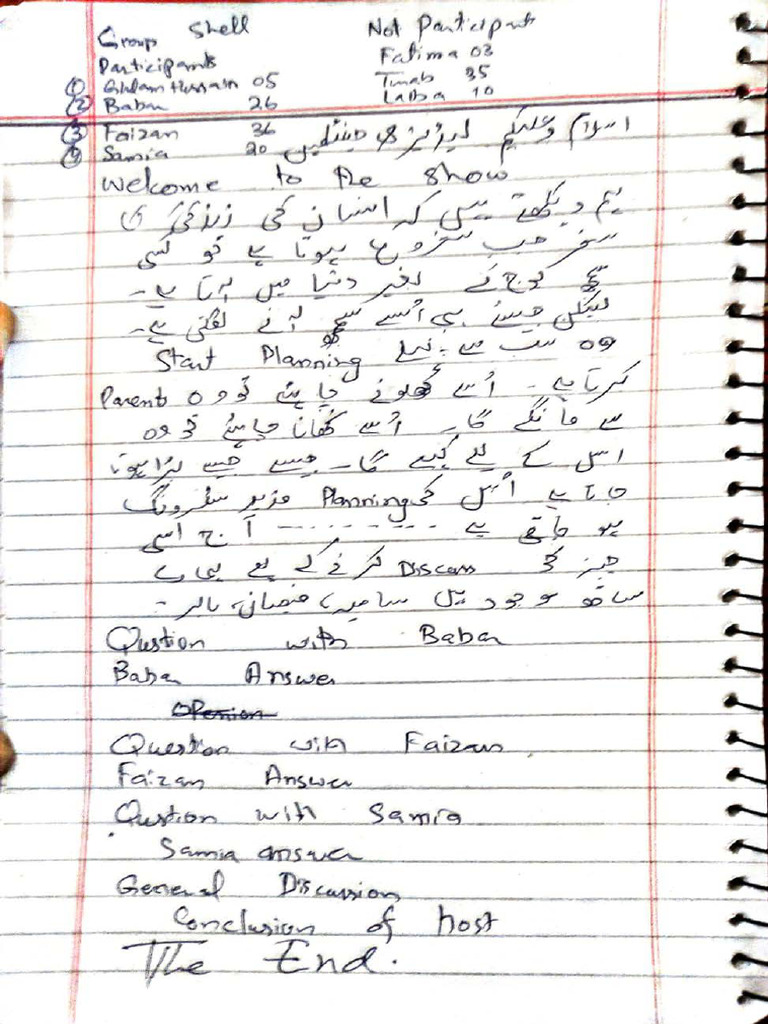 Group Shell
Not Participants
Participants
Fatima 03
① Ghulam Hussain 05
35
② Babar 26
Laiba 10
③ Faizan 36
④ Samia 20
اسلام وعلیکم لیڈیز
Welcome to the show
ہم دیکھتے ہیں کہ انسان کی زندگی کا
سفر جب شروع ہوتا ہے تو کسی
کے بغیر دنیا میں آتا ہے۔
لیکن جیسے ہی اُسے سمجھ آنے لگتی ہے۔
وہ سب سے پہلے Start Planning
کرتا ہے۔ اُسے کھلونے چاہئے تو وہ Parents
سے مانگے گا۔ اُسے کھانا چاہئے تو وہ
اس کے لیے کہے گا۔ جیسے جیسے بڑا ہوتا
جاتا ہے اُس کی Planning مزید سٹرونگ
ہو جاتی ہے ---------- آج اسی
چیز کو Discuss کرنے کے لیے ہمارے
ساتھ موجود ہیں سامیہ، فیضان، بابر۔
Qustion with Babar
Babar Answer
Openion
Question with Faizan
Faizan Answer
Qustion with Samia
Samia answer
General Discussion
Conclusion of host
The End.